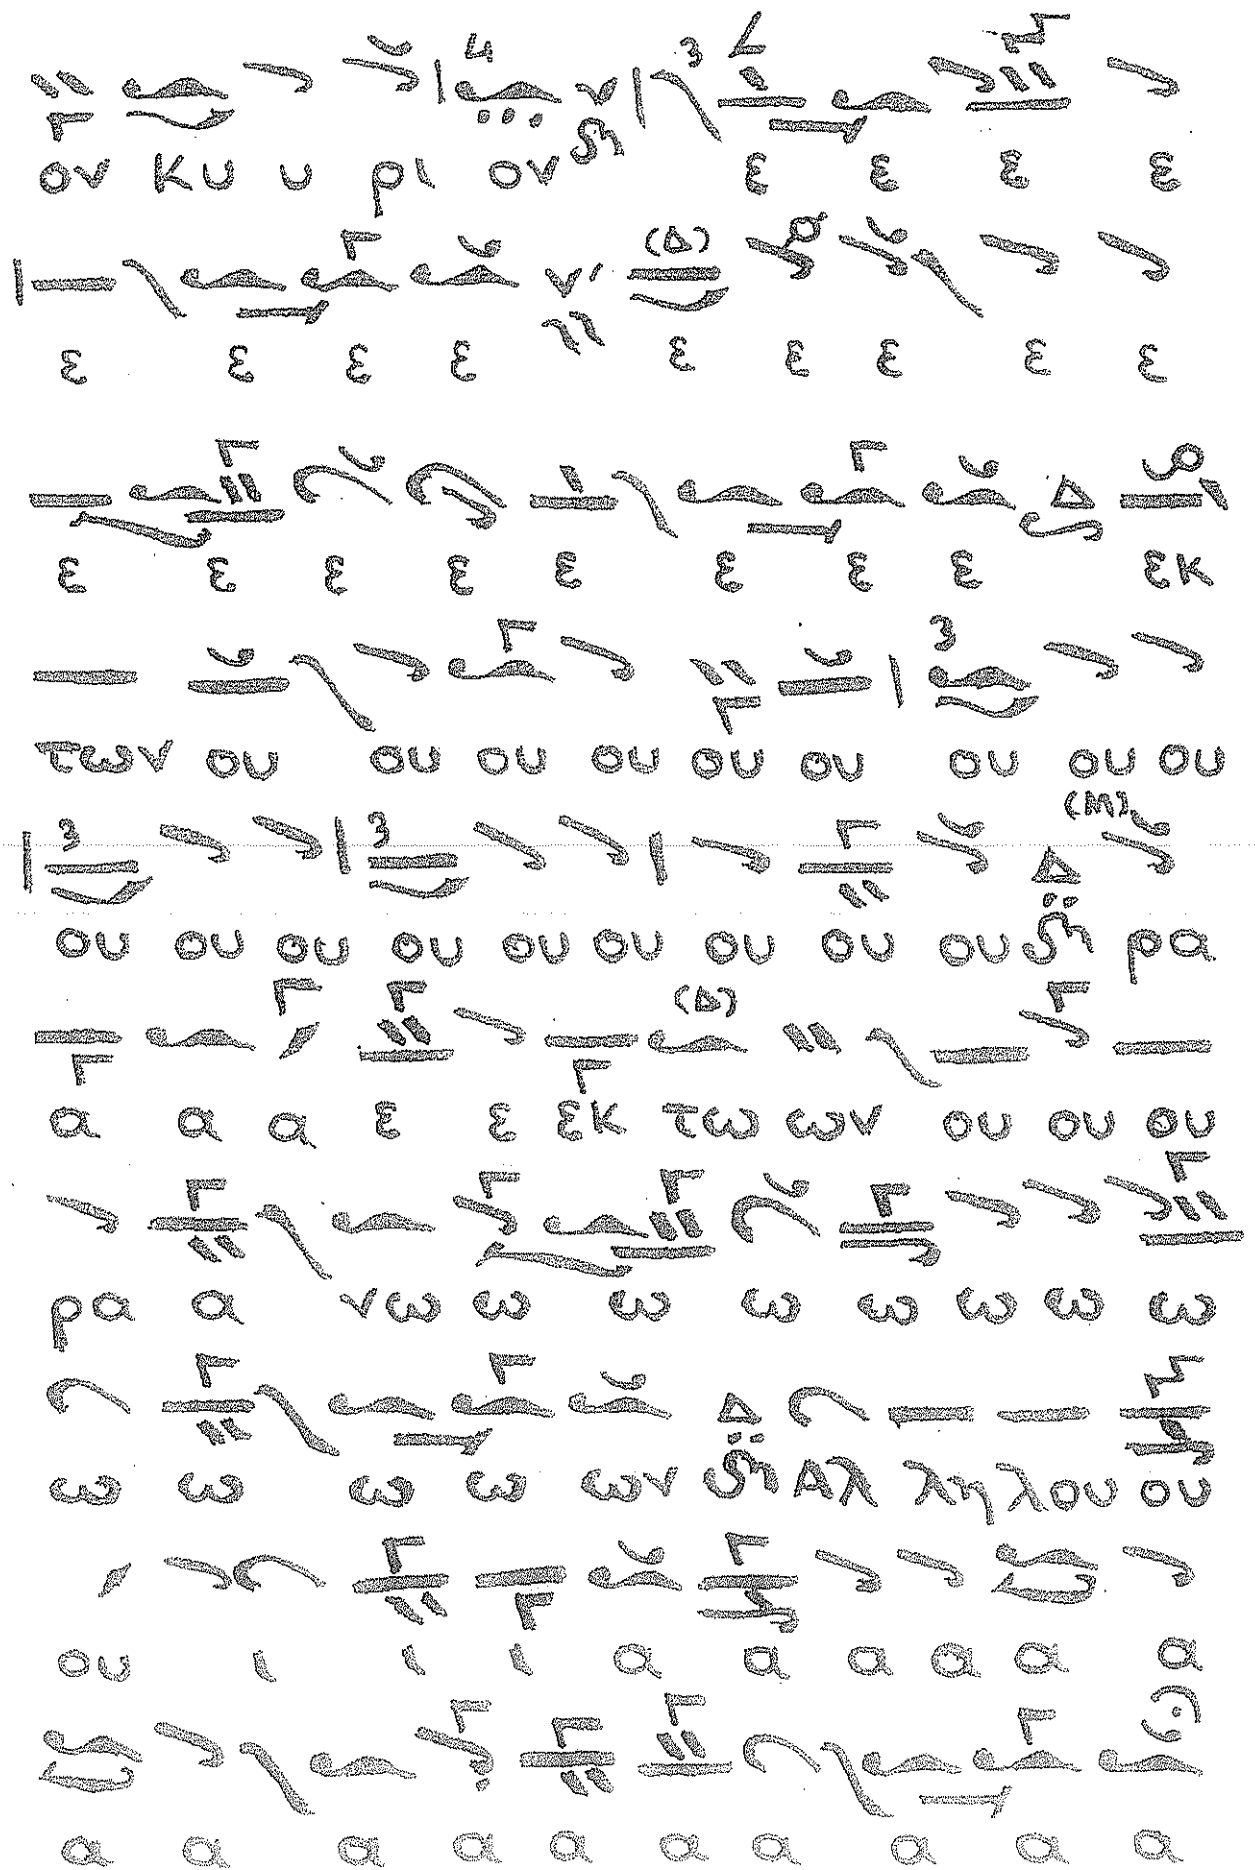 4 3
ον Κυ υ ρι ον ε ε ε ε
(Δ)
ν'
ε ε ε ε ε ε ε ε ε
Δ
ε ε ε ε ε ε ε ε εκ
3
των ου ου ου ου ου ου ου ου ου
3 3 (Μ)
Δ
ου ου ου ου ου ου ου ου ου ρα
(Δ)
α α α ε ε εκ τω ων ου ου ου
ρα α νω ω ω ω ω ω ω ω
Δ
ω ω ω ω ων Αλ λη λου ου
ου ι ι ι α α α α α α
α α α α α α α α α α